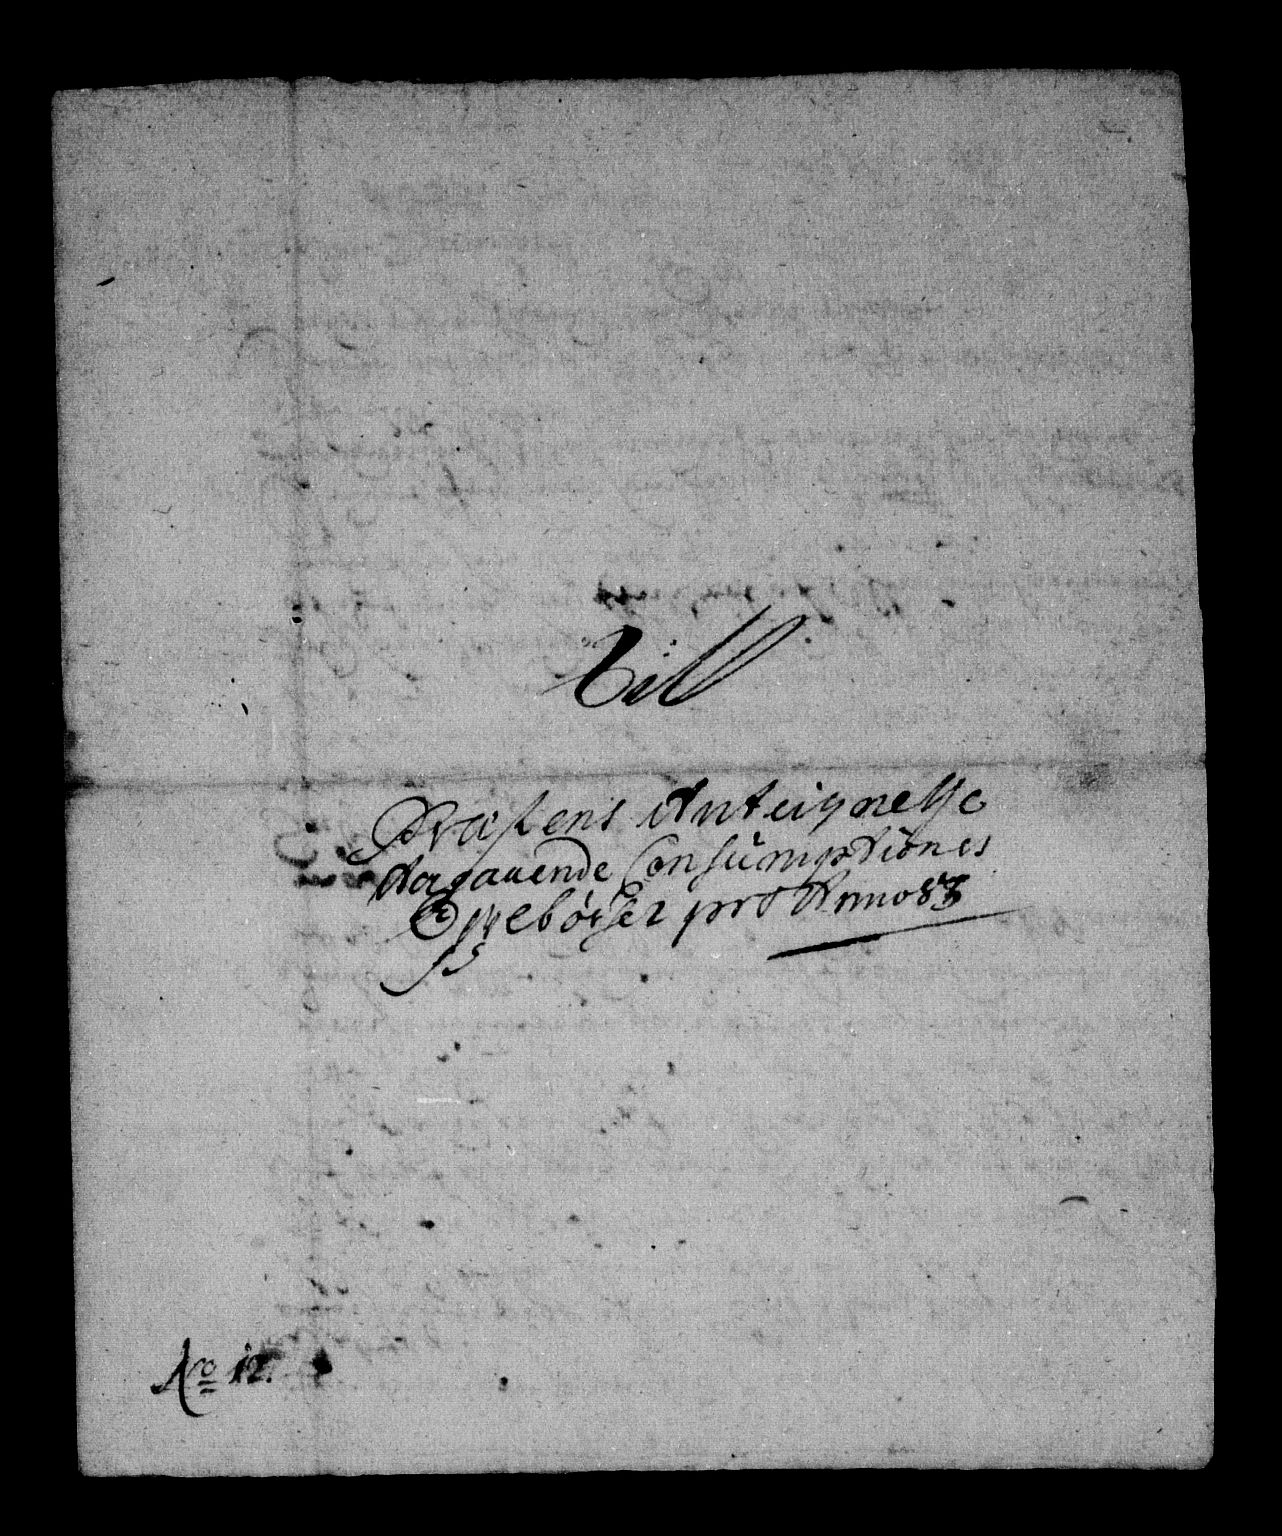 Till
Præstens Anteignelse
Angaaende Consumptiones
Oppebörsel pro Anno 83
No 12.